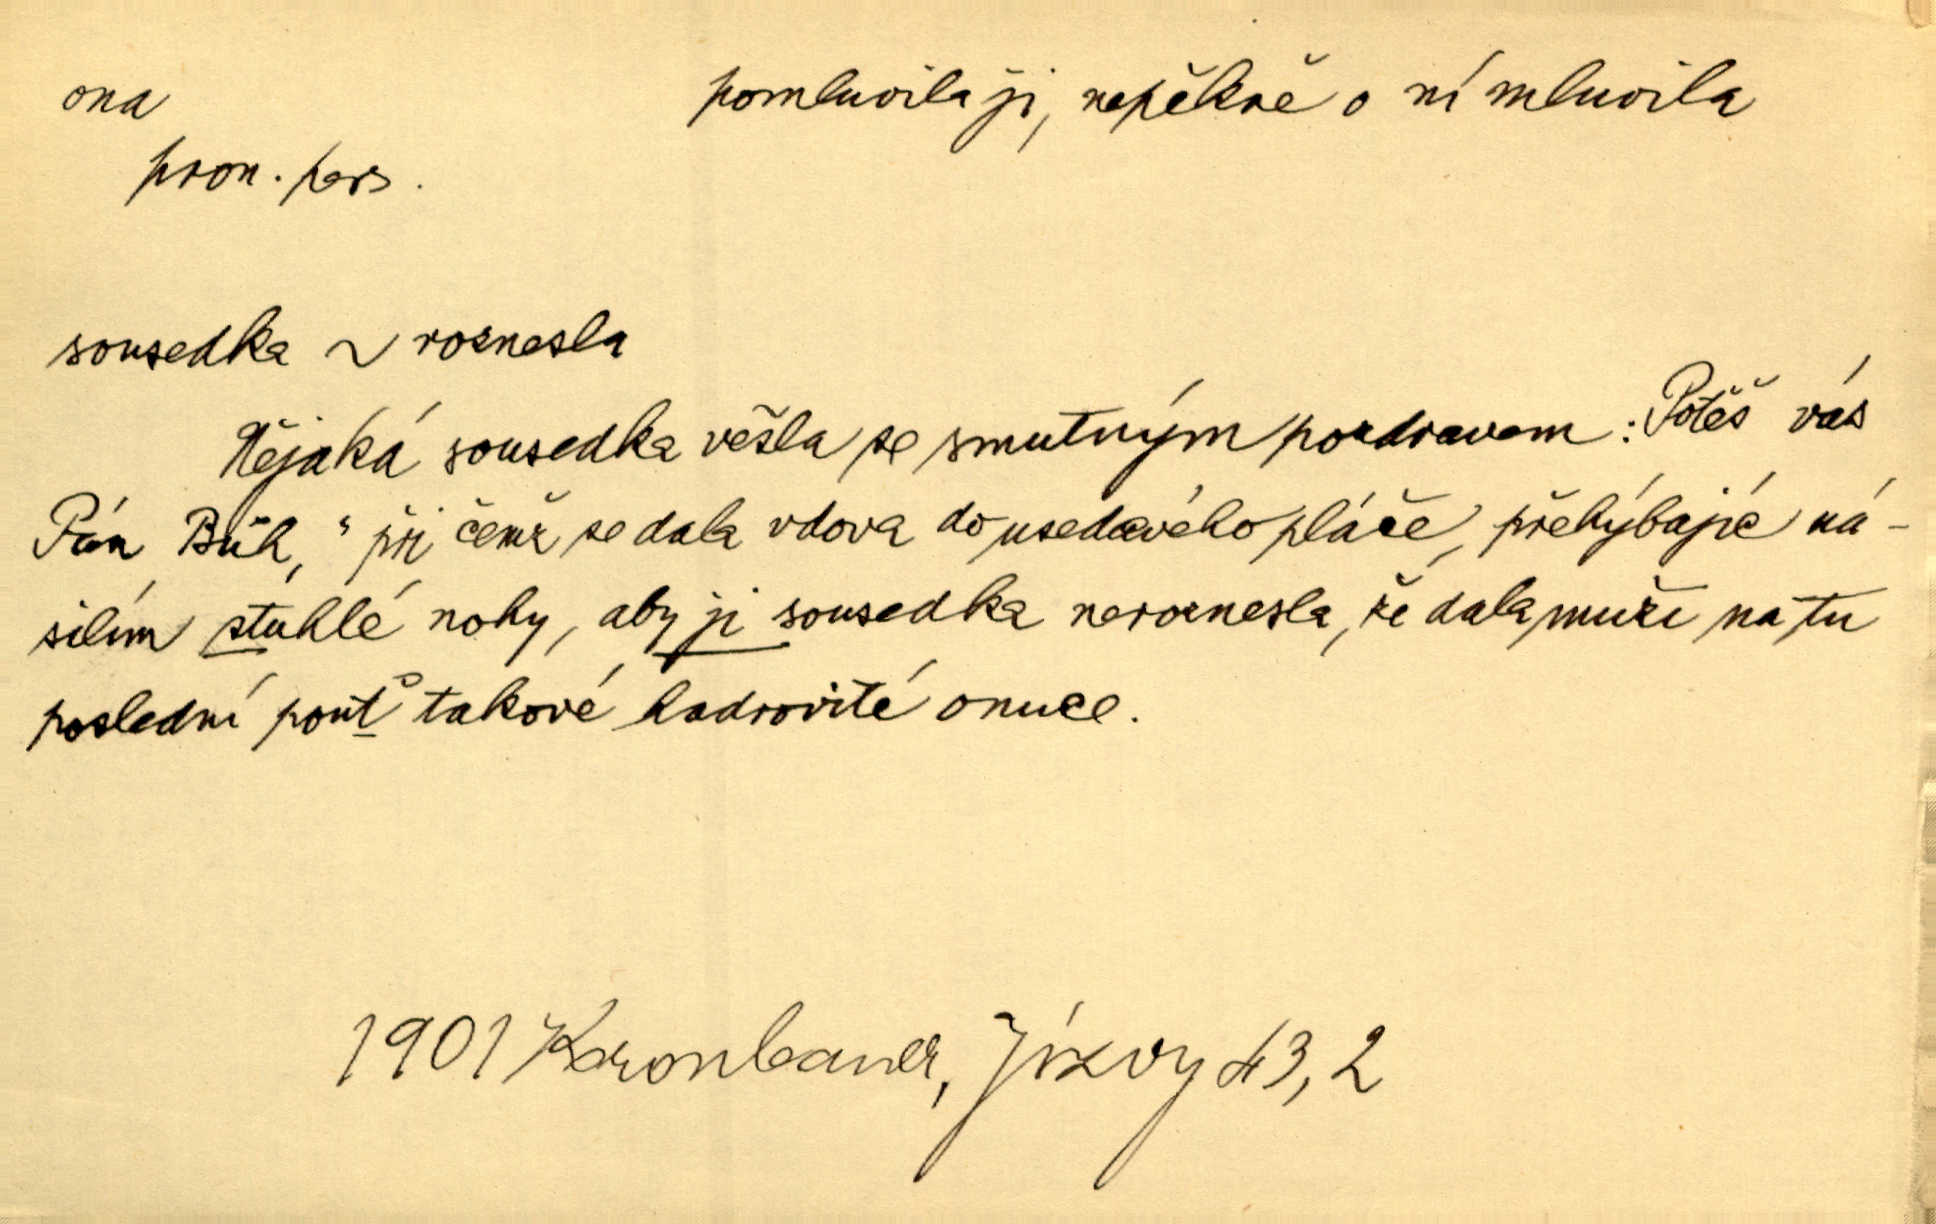 ona
pomluvila ji, nepěkně o ní mluvila
pron. pers.
sousedka ~ roznesla
Nějaká sousedka vešla se smutným pozdravem: Potěš vás
Pán Bůh,“ při čemž se dala vdova do usedavého pláče, přehýbajíc ná-
silím stuhlé nohy, aby ji sousedka neroznesla, že dala muži na tu
poslední pouť takové hadrovité onuce.
1901 Kronbauer, Jizvy 43, 2